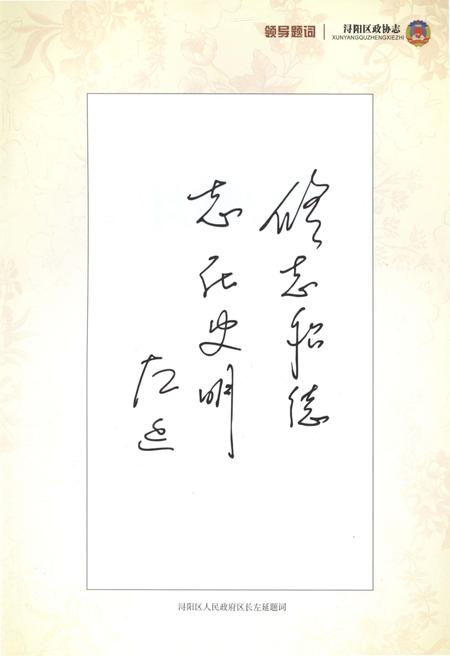 领导题词
浔阳区政协志
XUNYANGQUZHENGXIEZHI
修志德
志史明
左延
浔阳区人民政府区长左延题词